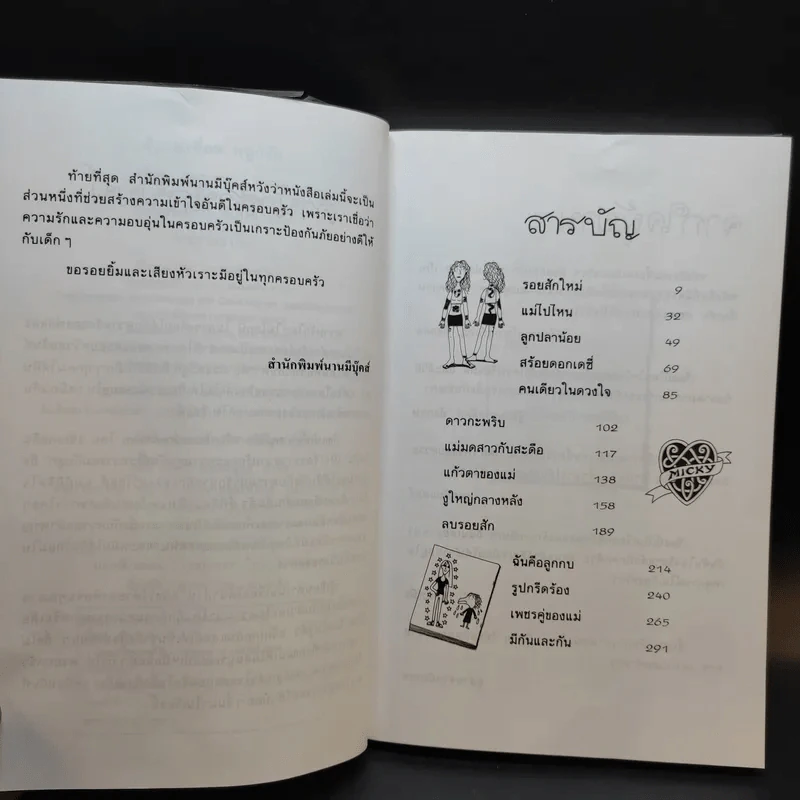 ท้ายที่สุด สำนักพิมพ์นานมีบุ๊คส์หวังว่าหนังสือเล่มนี้จะเป็น
ส่วนหนึ่งที่ช่วยสร้างความเข้าใจอันดีในครอบครัว เพราะเราเชื่อว่า
ความรักและความอบอุ่นในครอบครัวเป็นเกราะป้องกันภัยอย่างดีให้
กับเด็ก ๆ
ขอรอยยิ้มและเสียงหัวเราะมีอยู่ในทุกครอบครัว
สำนักพิมพ์นานมีบุ๊คส์
สารบัญ
รอยสักใหม่ 9
แม่ไปไหน 32
ลูกปลาน้อย 49
สร้อยดอกเดซี่ 69
คนเดียวในดวงใจ 85
ดาวกะพริบ 102
แม่มดสาวกับสะดือ 117
แก้วตาของแม่ 138
งูใหญ่กลางหลัง 158
ลบรอยสัก 189
MICKY
ฉันคือลูกกบ 214
รูปกรีดร้อง 240
เพชรคู่ของแม่ 265
มีกันและกัน 291